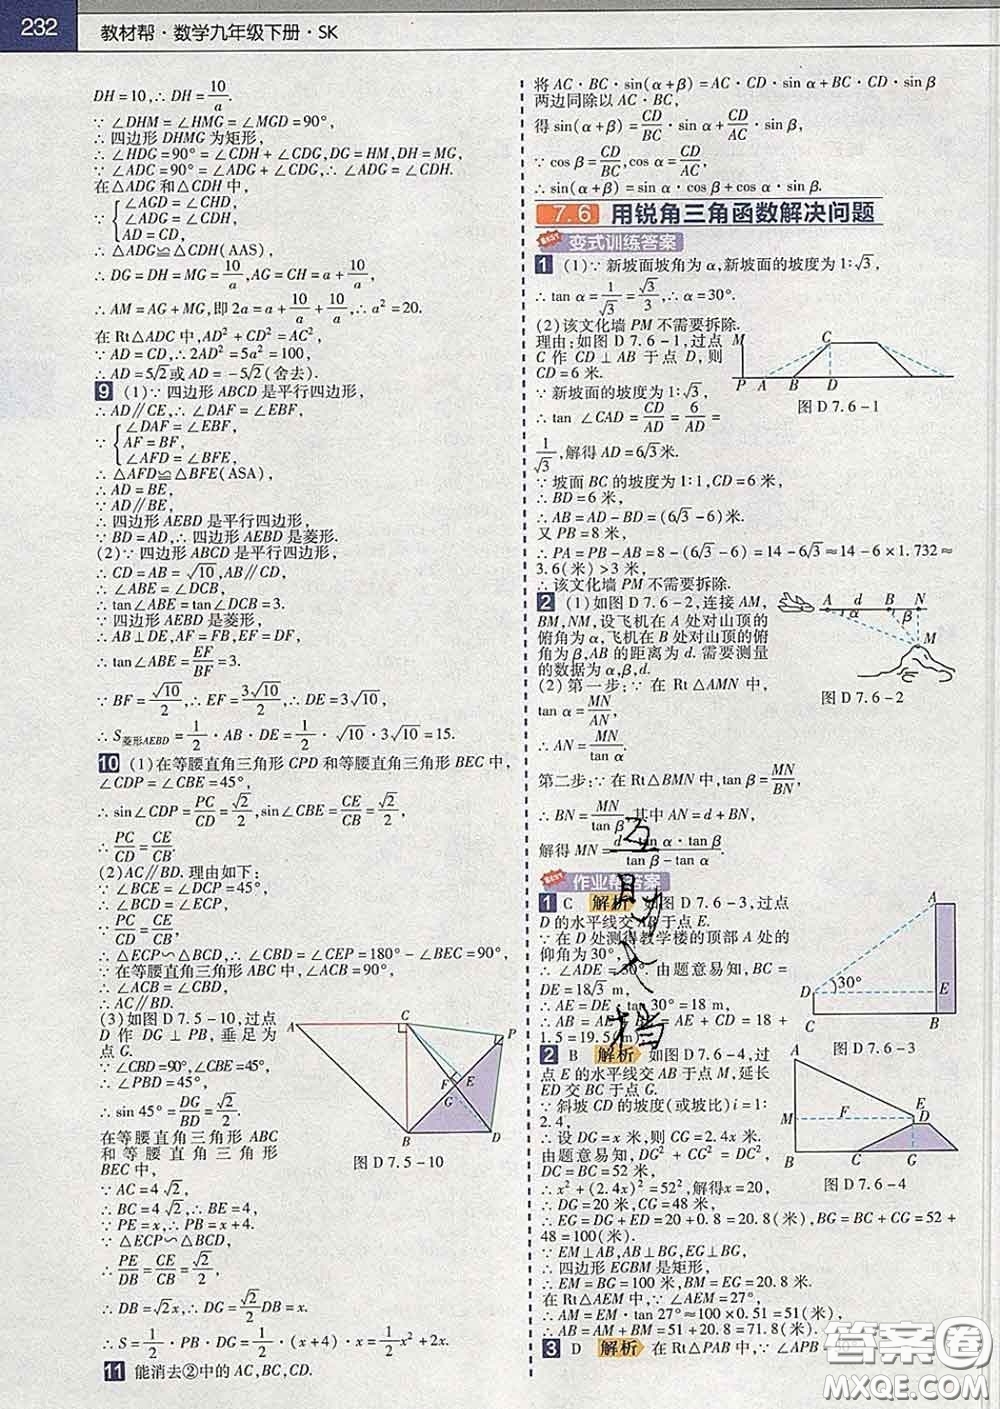 232 教材帮·数学九年级下册·SK
DH=10,∴DH=10/a.
∵∠DHM=∠HMG=∠MGD=90°,
∴四边形DHMG为矩形,
∴∠HDG=90°=∠CDH+∠CDG,DG=HM,DH=MG,
∵∠ADC=90°=∠ADG+∠CDG,∴∠ADG=∠CDH.
在△ADG和△CDH中,
∠AGD=∠CHD,
∵{∠ADG=∠CDH,
AD=CD,
∴△ADG≌△CDH(AAS),
∴DG=DH=MG=10/a,AG=CH=a+10/a,
∴AM=AG+MG,即2a=a+10/a+10/a,∴a²=20.
在Rt△ADC中,AD²+CD²=AC²,
∵AD=CD,∴2AD²=5a²=100,
∴AD=5√2或AD=-5√2(舍去).
9 (1)∵四边形ABCD是平行四边形,
∴AD∥CE,∴∠DAF=∠EBF,
∠DAF=∠EBF,
∵{AF=BF,
∠AFD=∠EFB,
∴△AFD≌△BFE(ASA),
∴AD=BE,
∵AD∥BE,
∴四边形AEBD是平行四边形,
∵BD=AD,∴四边形AEBD是菱形.
(2)∵四边形ABCD是平行四边形,
∴CD=AB=√10,AB∥CD,
∴∠ABE=∠DCB,
∴tan∠ABE=tan∠DCB=3.
∵四边形AEBD是菱形,
∴AB⊥DE,AF=FB,EF=DF,
∴tan∠ABE=EF/BF=3.
∵BF=√10/2,∴EF=3√10/2,∴DE=3√10,
∴S菱形AEBD=1/2·AB·DE=1/2·√10·3√10=15.
10 (1)在等腰直角三角形CPD和等腰直角三角形BEC中,
∠CDP=∠CBE=45°,
∴sin∠CDP=PC/CD=√2/2,sin∠CBE=CE/CB=√2/2,
∴PC/CD=CE/CB.
(2)AC∥BD.理由如下:
∵∠BCE=∠DCP=45°,
∴∠BCD=∠ECP,
∵PC/CD=CE/CB,
∴△ECP∽△BCD,∴∠CBD=∠CEP=180°-∠BEC=90°,
∵在等腰直角三角形ABC中,∠ACB=90°,
∴∠ACB=∠CBD,
∴AC∥BD.
(3)如图D7.5-10,过点
D作DG⊥PB,垂足为
点G.
∵∠CBD=90°,∠CBE=45°,
∴∠PBD=45°,
∴sin 45°=DG/BD=√2/2.
在等腰直角三角形ABC
和等腰直角三角形
BEC中,
∵AC=4√2,
∴BC=4√2,∴BE=4,
∵PE=x,∴PB=x+4.
∵△ECP∽△BCD,
∴PE/DB=CE/CB=√2/2,
∴DB=√2x,∴DG=√2/2DB=x.
∴S=1/2·PB·DG=1/2·(x+4)·x=1/2x²+2x.
11 能消去②中的AC,BC,CD.
A C P F E G B D
图D7.5-10
将AC·BC·sin(α+β)=AC·CD·sin α+BC·CD·sin β
两边同除以AC·BC,
得sin(α+β)=CD/BC·sin α+CD/AC·sin β,
∵cos β=CD/BC,cos α=CD/AC,
∴sin(α+β)=sin α·cos β+cos α·sin β.
7.6 用锐角三角函数解决问题
变式训练答案
1 (1)∵新坡面坡角为α,新坡面的坡度为1∶√3,
∴tan α=1/√3=√3/3,∴α=30°.
(2)该文化墙PM不需要拆除.
理由:如图D7.6-1,过点
C作CD⊥AB于点D,则
CD=6米.
∵新坡面的坡度为1∶√3,
∴tan ∠CAD=CD/AD=6/AD=
1/√3,解得AD=6√3米.
∵坡面BC的坡度为1∶1,CD=6米,
∴BD=6米,
∴AB=AD-BD=(6√3-6)米.
又PB=8米,
∴PA=PB-AB=8-(6√3-6)=14-6√3≈14-6×1.732≈
3.6(米)>3米,
∴该文化墙PM不需要拆除.
M C P A B D
图D7.6-1
2 (1)如图D7.6-2,连接AM,
BM,NM,设飞机在A处对山顶的
俯角为α,飞机在B处对山顶的俯
角为β,AB的距离为d.需要测量
的数据为α,β,d.
(2)第一步:∵在Rt△AMN中,
tan α=MN/AN,
∴AN=MN/tan α.
第二步:∵在Rt△BMN中,tan β=MN/BN,
∴BN=MN/tan β,其中AN=d+BN,
解得MN=d·tan α·tan β/tan β-tan α.
A d B N α β M
图D7.6-2
作业帮答案
1 C 解析 如图D7.6-3,过点
D的水平线交AB于点E.
∵在D处测得教学楼的顶部A处的
仰角为30°,
∴∠ADE=30°.由题意易知,BC=
DE=18√3 m,
∴AE=DE·tan 30°=18 m,
∴AB=AE+BE=AE+CD=18+
1.5=19.5(m).
A D 30° E C B
图D7.6-3
2 B 解析 如图D7.6-4,过
点E的水平线交AB于点M,延长
ED交BC于点G.
∵斜坡CD的坡度(或坡比)i=1∶
2.4,
∴设DG=x米,则CG=2.4x米.
由题意易知,DG²+CG²=DC²,
DC=BC=52米,
∴x²+(2.4x)²=52²,解得x=20,
∴DG=20米,CG=48米,
∴EG=DG+ED=20+0.8=20.8(米),BG=BC+CG=52+
48=100(米).
∵EM⊥AB,AB⊥BG,EG⊥BG,
∴四边形EGBM是矩形,
∴EM=BG=100米,BM=EG=20.8米.
在Rt△AEM中,∵∠AEM=27°,
∴AM=EM·tan 27°≈100×0.51=51(米),
∴AB=AM+BM=51+20.8=71.8(米).
A M F E D B C G
图D7.6-4
3 D 解析 在Rt△PAB中,∵∠APB
互助文档
答案圈
MXQE.COM